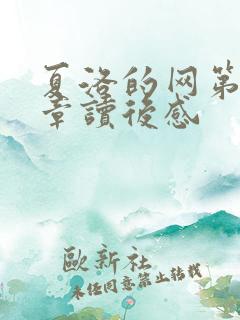 夏洛的网第
章讀後感
歐新社
未经同意禁止转载